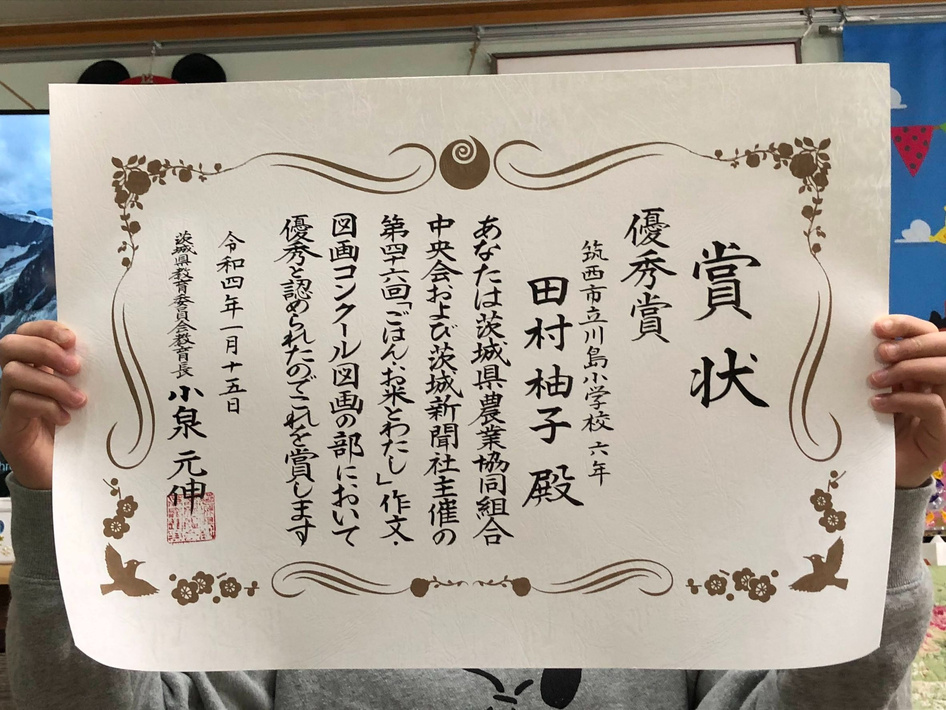 賞状
優秀賞
筑西市立川島小学校 六年
田村 柚子 殿
あなたは茨城県農業協同組合
中央会および茨城新聞社主催の
第四十六回「ごはん・お米とわたし」作文・
図画コンクール図画の部において
優秀と認められたのでこれを賞します
令和四年一月十五日
茨城県教育委員会教育長 小泉 元伸